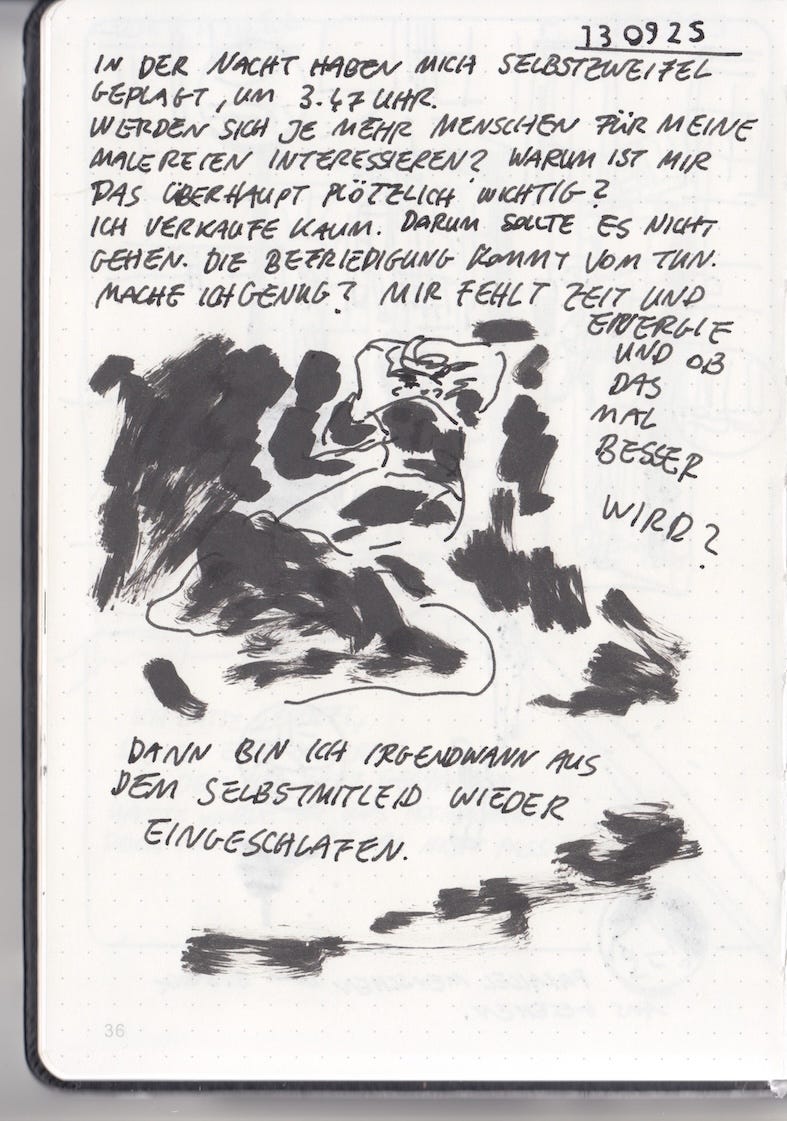 13 09 25
IN DER NACHT HABEN MICH SELBSTZWEIFEL
GEPLAGT, UM 3.47 UHR.
WERDEN SICH JE MEHR MENSCHEN FÜR MEINE
MALEREIEN INTERESSIEREN? WARUM IST MIR
DAS ÜBERHAUPT PLÖTZLICH WICHTIG?
ICH VERKAUFE KAUM. DARUM SOLLTE ES NICHT
GEHEN. DIE BEFRIEDIGUNG KOMMT VOM TUN.
MACHE ICH GENUG? MIR FEHLT ZEIT UND
ENERGIE
UND OB
DAS
MAL
BESSER
WIRD?
DANN BIN ICH IRGENDWANN AUS
DEM SELBSTMITLEID WIEDER
EINGESCHLAFEN.
36